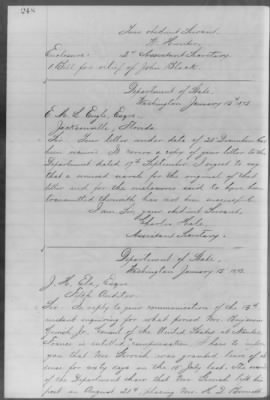 Your obedient Servant.
W. Hunter.
Enclosure: 2nd Assistant Secretary.
1. Bill for relief of John Black.
Department of State.
Washington January 15th 1873.
E. M. L. Engle, Esqre.
Jacksonville, Florida.
Sir. Your letter under date of 28 December has
been received. It covers a copy of your letter to the
Department dated 17th September. I regret to say
that a renewed search for the original of that
letter and for the enclosures said to have been
transmitted therewith has not been successful.
I am Sir, your obedient Servant,
Charles Hale.
Assistant Secretary.
Department of State.
Washington January 15 1873.
J. H. Ela, Esqre
Fifth Auditor.
Sir. In reply to your communication of the 13th
instant inquiring for what period Mr. Benjamin
Gerrish Jr. Consul of the United States at
France is entitled to compensation. I have to inform
you that Mr. Gerrish was granted leave of ab
sence for sixty days on the 10 July last. The records
of the Department show that Mr. Gerrish left his
post on August 21st, placing Mr. H. D.